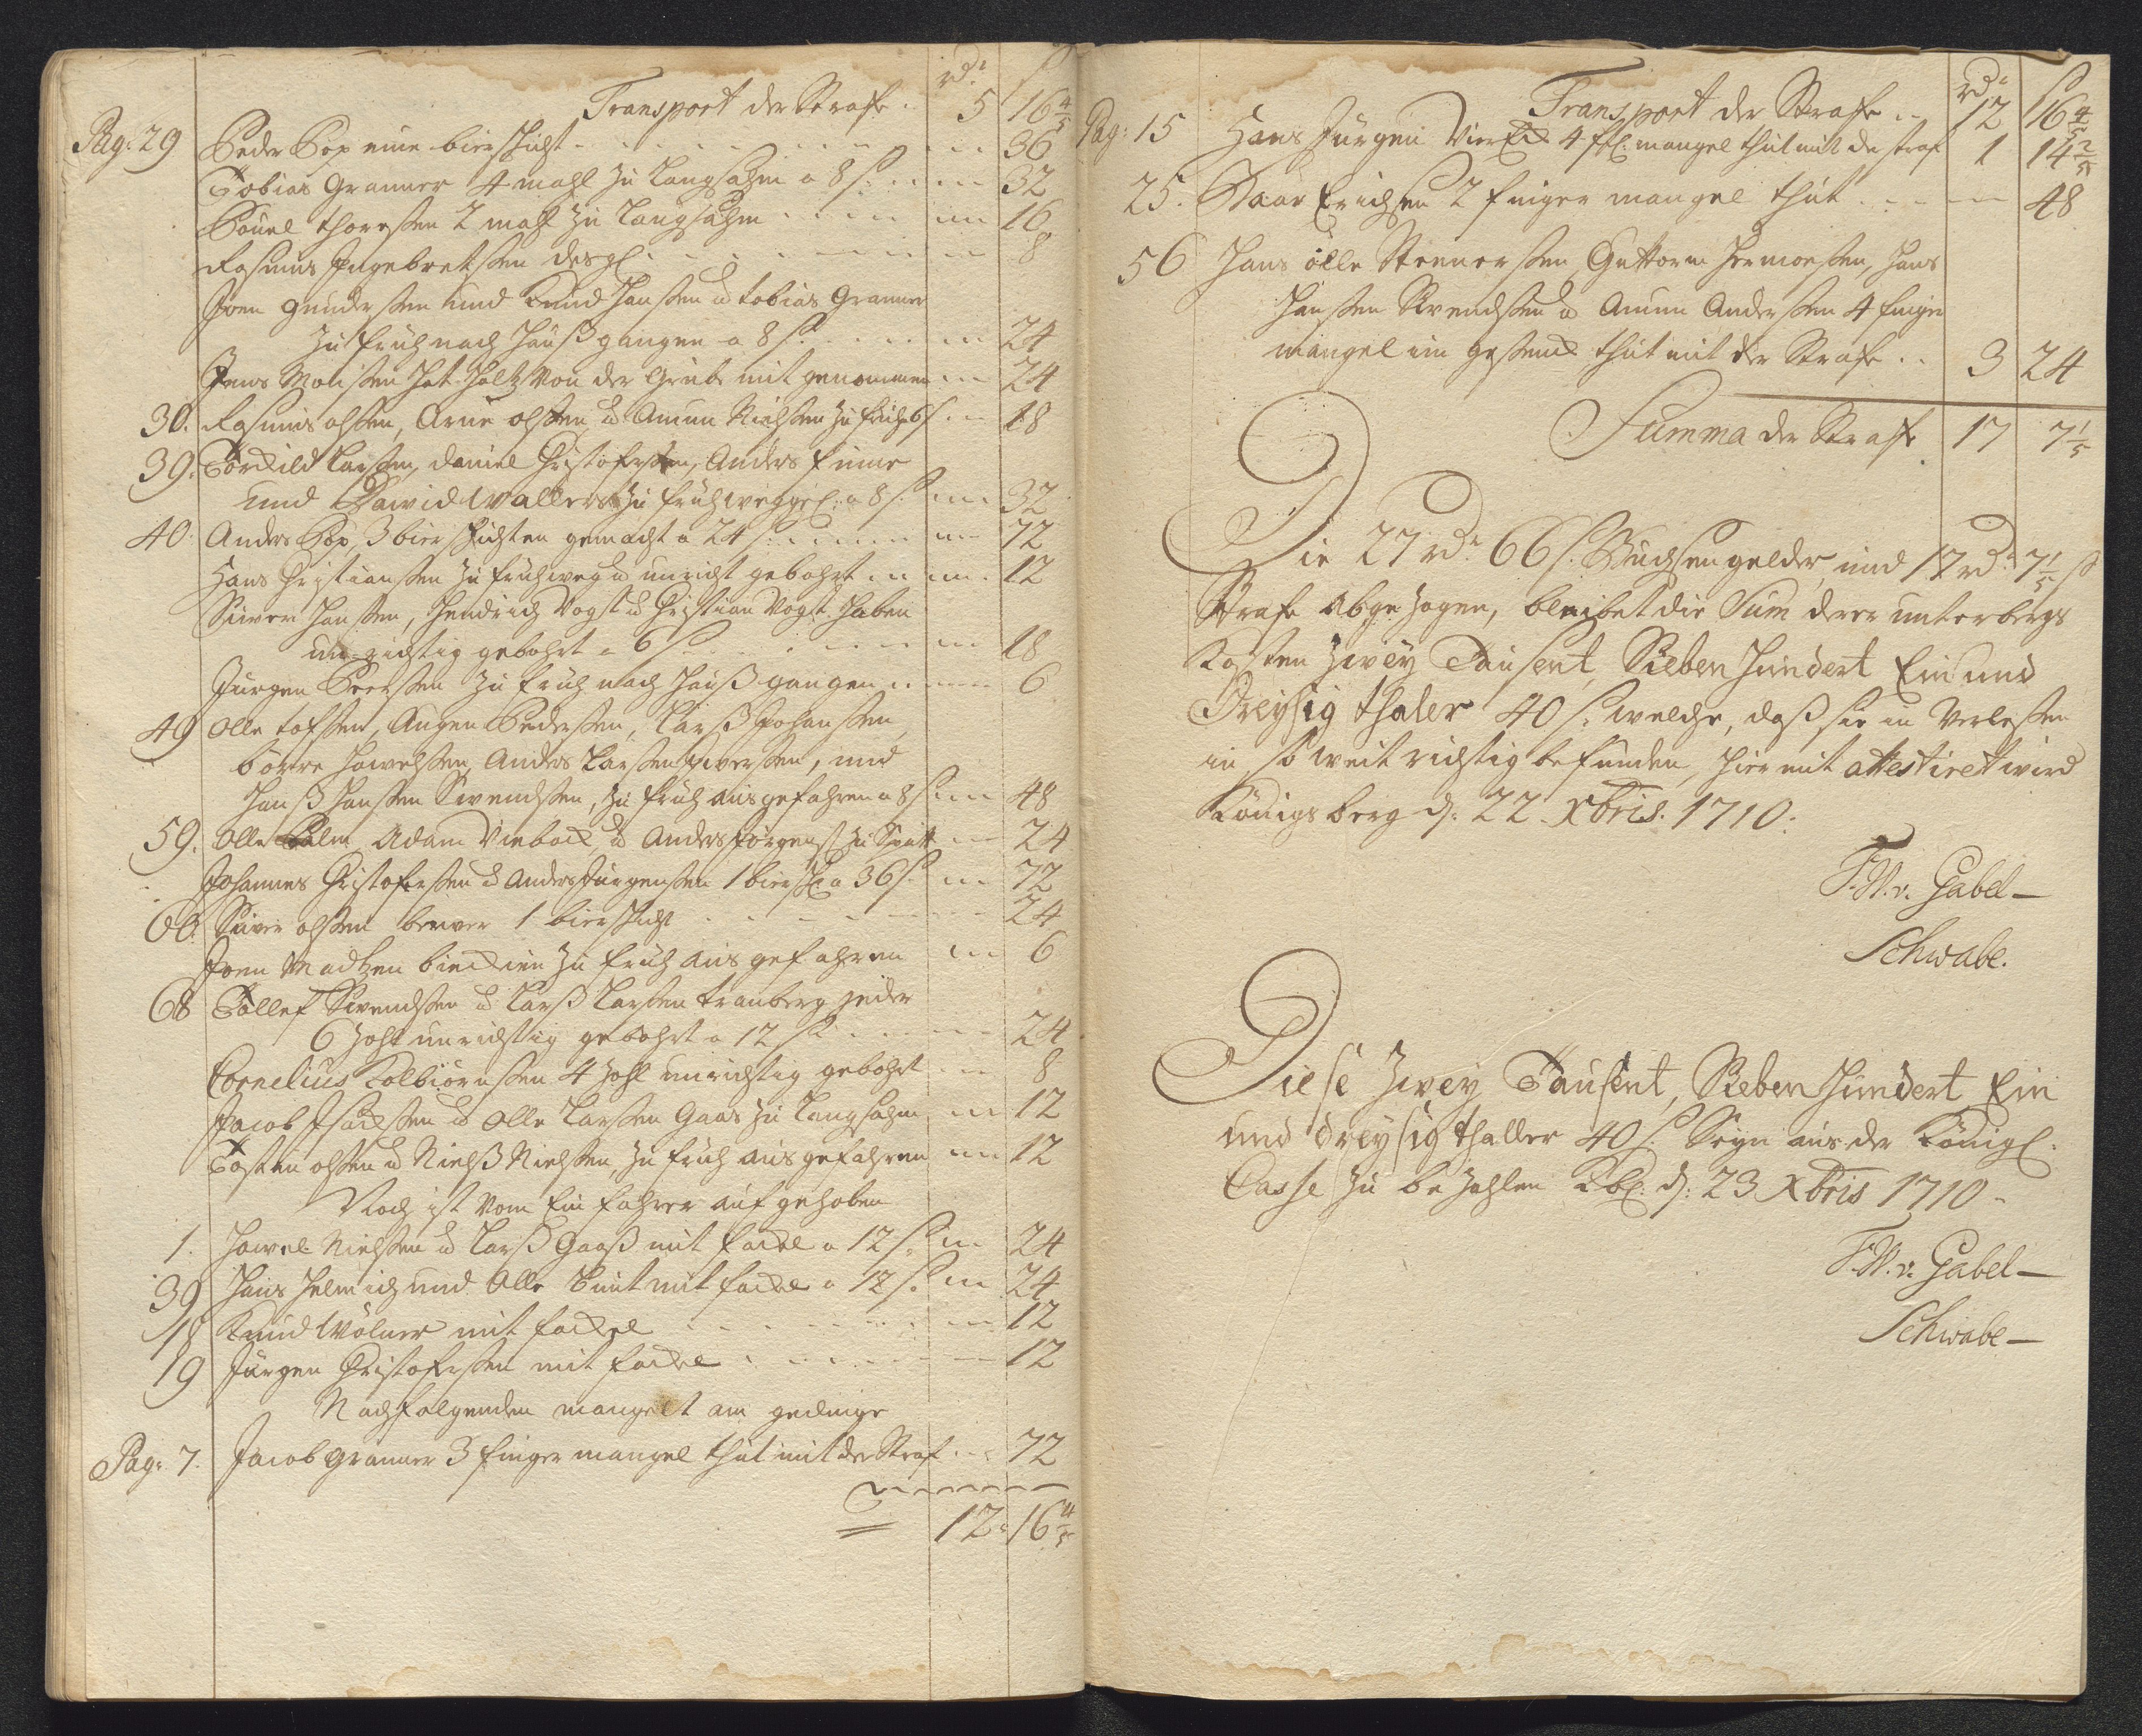 rd. ß
Transport der Straffe. 5 16 4/5
Pag: 29 Peder Pop eine bierschicht 36
Tobias Granner 4 mahl zu langsahm a 8 ß. 32
Pouel thoreßen 2 mahl zu langsahm 16
Rasmus Ingebretßen desgl. 8
Joen Gunderßen und Knud Hanßen u Tobias Granner
zu früh nach Hauß gangen a 8 ß. 24
Jens Monßen hat Holtz von der Grube mit genommen 24
30. Rasmus olßen, Arne olßen u Amun Nielßen zu früh a 6 ß 18
39. Torkild Larßen, Daniel Christoferßen, Anders Finne
und David Wallers zu früh weggel: a 8 ß. 32
40. Anders Pop 3 bierschichten gemacht a 24 ß. 72
Hans Christianßen zu früh weg u unricht gebohrt 12
Siver Hanßen, Hendrich Vogt u Christian Vogt haben
unrichtig gebohrt a 6 ß 18
Jürgen Peerßen zu früh nach Hauß gangen 6
49 Olle tofßen, Augen Pederßen, Larß Johanßen,
börre Hawelßen, Anders Larßen Iverßen, und
Hanß Hanßen Svendßen, zu früh ausgefahren a 8 ß 48
59. Olle Palm, Adam Vieback, u Anders Jörgenß zu Spätt 24
Johannes Christoferßen u Anders Jürgenßen 1 biersch: a 36 ß. 72
60. Siver olßen berver 1 bierschicht 24
Joen Madtzen zu früh ausgefahren 6
68 Tollef Svendßen u Larß Larßen tranberg jeder
6 Zohl unrichtig gebohrt a 12 ß 24
Cornelius Kolbiörnßen 4 Zohl unrichtig gebohrt 8
Jacob Isackßen u Olle Larßen Gaas zu langsahm 12
Tosten olßen u Nielß Nielßen, zu früh ausgefahren 12
Noch ist vom Einfahrer aufgehoben
1. Hawel Nielßen u Larß Gaaß mit fackel a 12 ß 24
39 Hans Helmich und Olle mit fackel a 12 ß. 24
18 Knud Wölner mit fackel 12
19 Jürgen Christoferßen mit fackel 12
Nachfolgenden mangelt am gedinge
Pag: 7. Jacob Granner 3 finger mangel thut mit der Straf 72
12 16 4/5
rd. ß
Transport der Straffe 12 16 4/5
Pag: 15 Hans Jürgen Viereck 4 mangel thut mit der straf 1 14 2/5
25. Paar Erichsen 2 finger mangel thut 48
56 Hans Olle Steenerßen, Guttorm Hermoeßen, Hans
Hanßen Svendßen u Amun Anderßen 4 finger
mangel im gestend thut mit der Strafe 3 24
Summa der Straffe 17 7 1/5
Die 27 rd. 66 ß. Buchsengelder und 17 rd. 7 1/5 ß
Strafe abgezogen, bleibet die Sum derer unterbergs
Kosten Zwey Tausent, Sieben Hundert Ein und
Dreysig thaler 40 ß. welche, daß sie in Verleßen
in so weit richtig befunden, hiermit attestiret wird
Königsberg d: 22 Xbris. 1710:
F.W.v. Gabel
Schwabe.
Diese Zwey Tausent, Sieben Hundert Ein
und dreysig thaller 40 ß. Seyn aus der Königl.
Casse zu bezahlen Kb: d: 23 Xbris 1710
F.W.v. Gabel
Schwabe